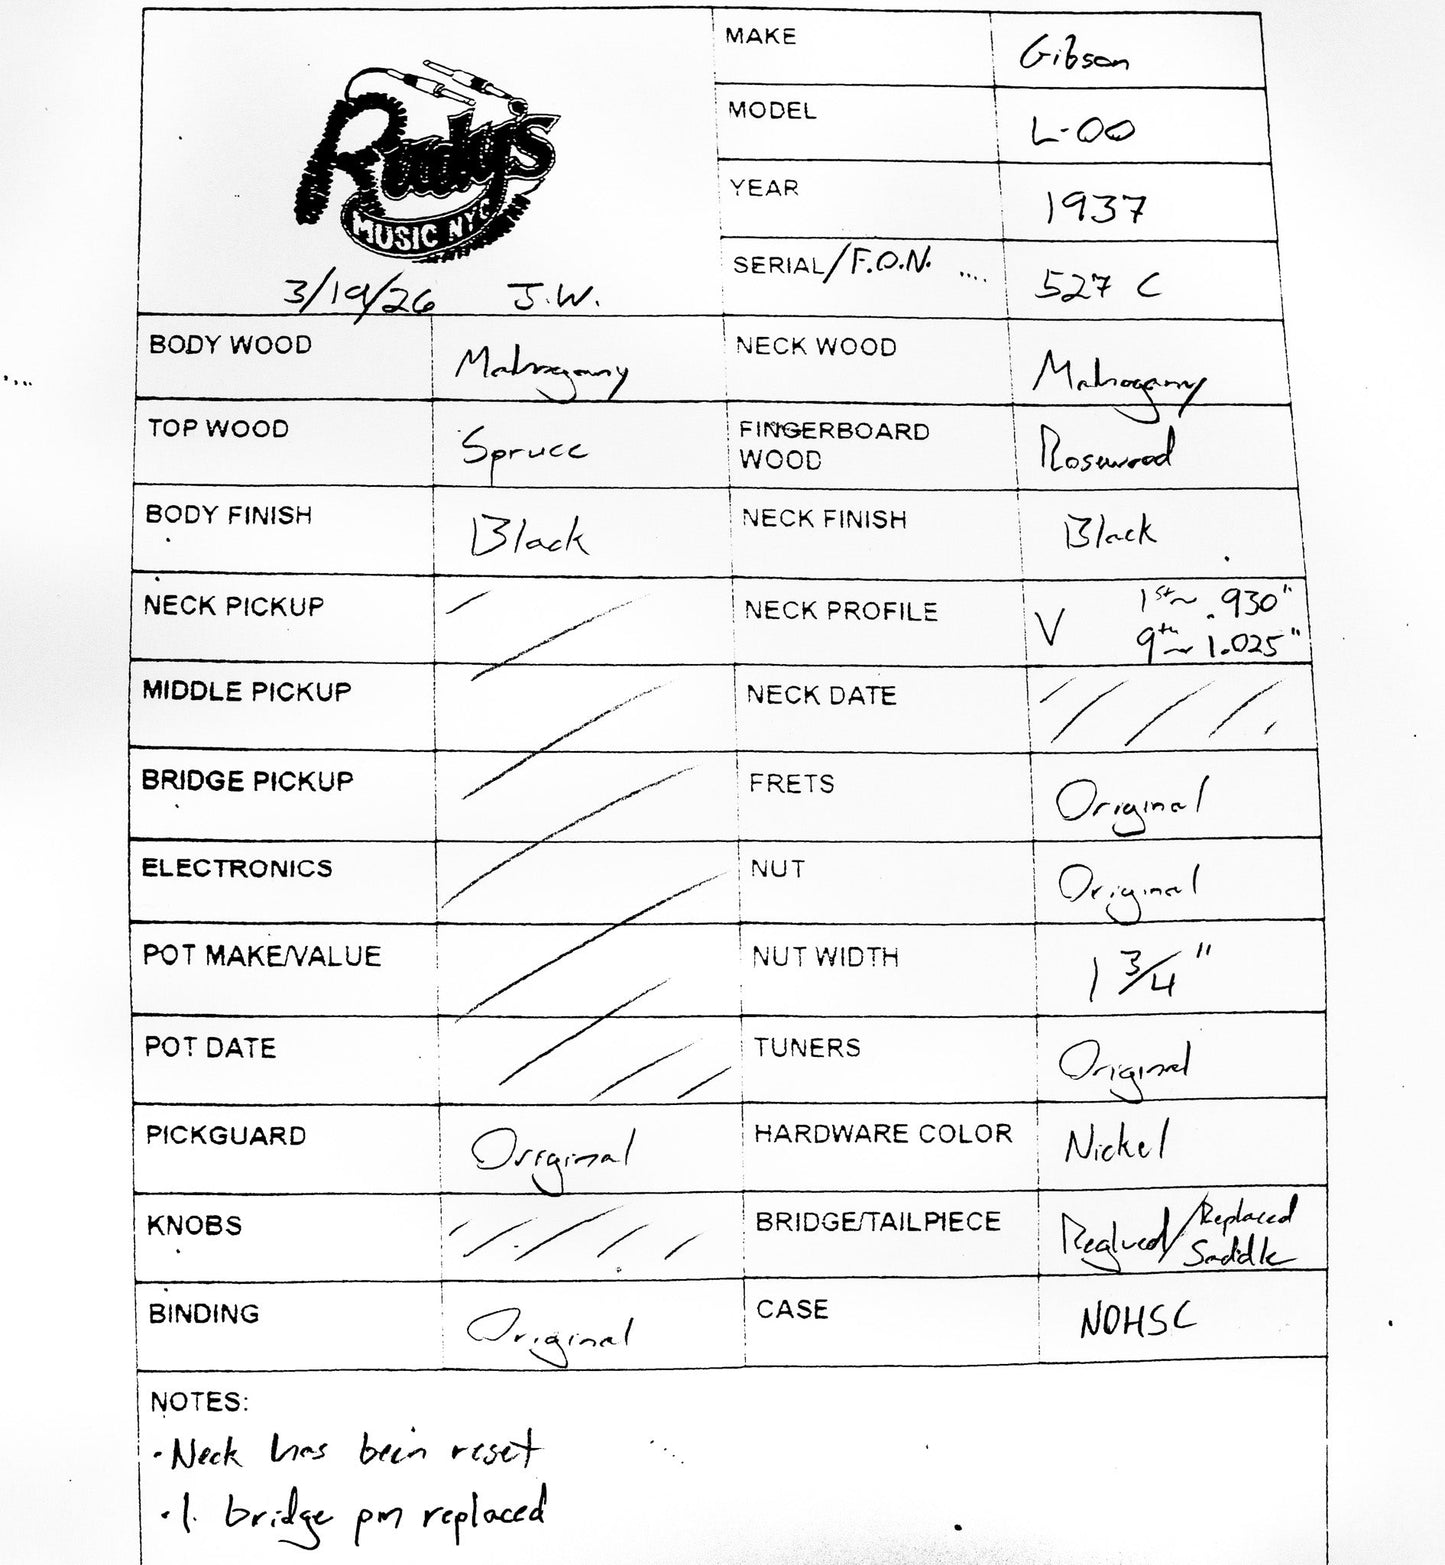 Rudy's
MUSIC NYC
3/19/26 J.W.
MAKE Gibson
MODEL L-00
YEAR 1937
SERIAL/F.O.N. .... 527 C
BODY WOOD Mahogany NECK WOOD Mahogany
TOP WOOD Spruce FINGERBOARD WOOD Rosewood
BODY FINISH Black NECK FINISH Black
NECK PICKUP NECK PROFILE V 1st~ .930"
9th~ 1.025"
MIDDLE PICKUP NECK DATE
BRIDGE PICKUP FRETS Original
ELECTRONICS NUT Original
POT MAKE/VALUE NUT WIDTH 1 3/4"
POT DATE TUNERS Original
PICKGUARD Original HARDWARE COLOR Nickel
KNOBS BRIDGE/TAILPIECE Reglued/Replaced
Saddle
BINDING Original CASE NOHSC
NOTES:
·Neck has been reset
·1. bridge pin replaced